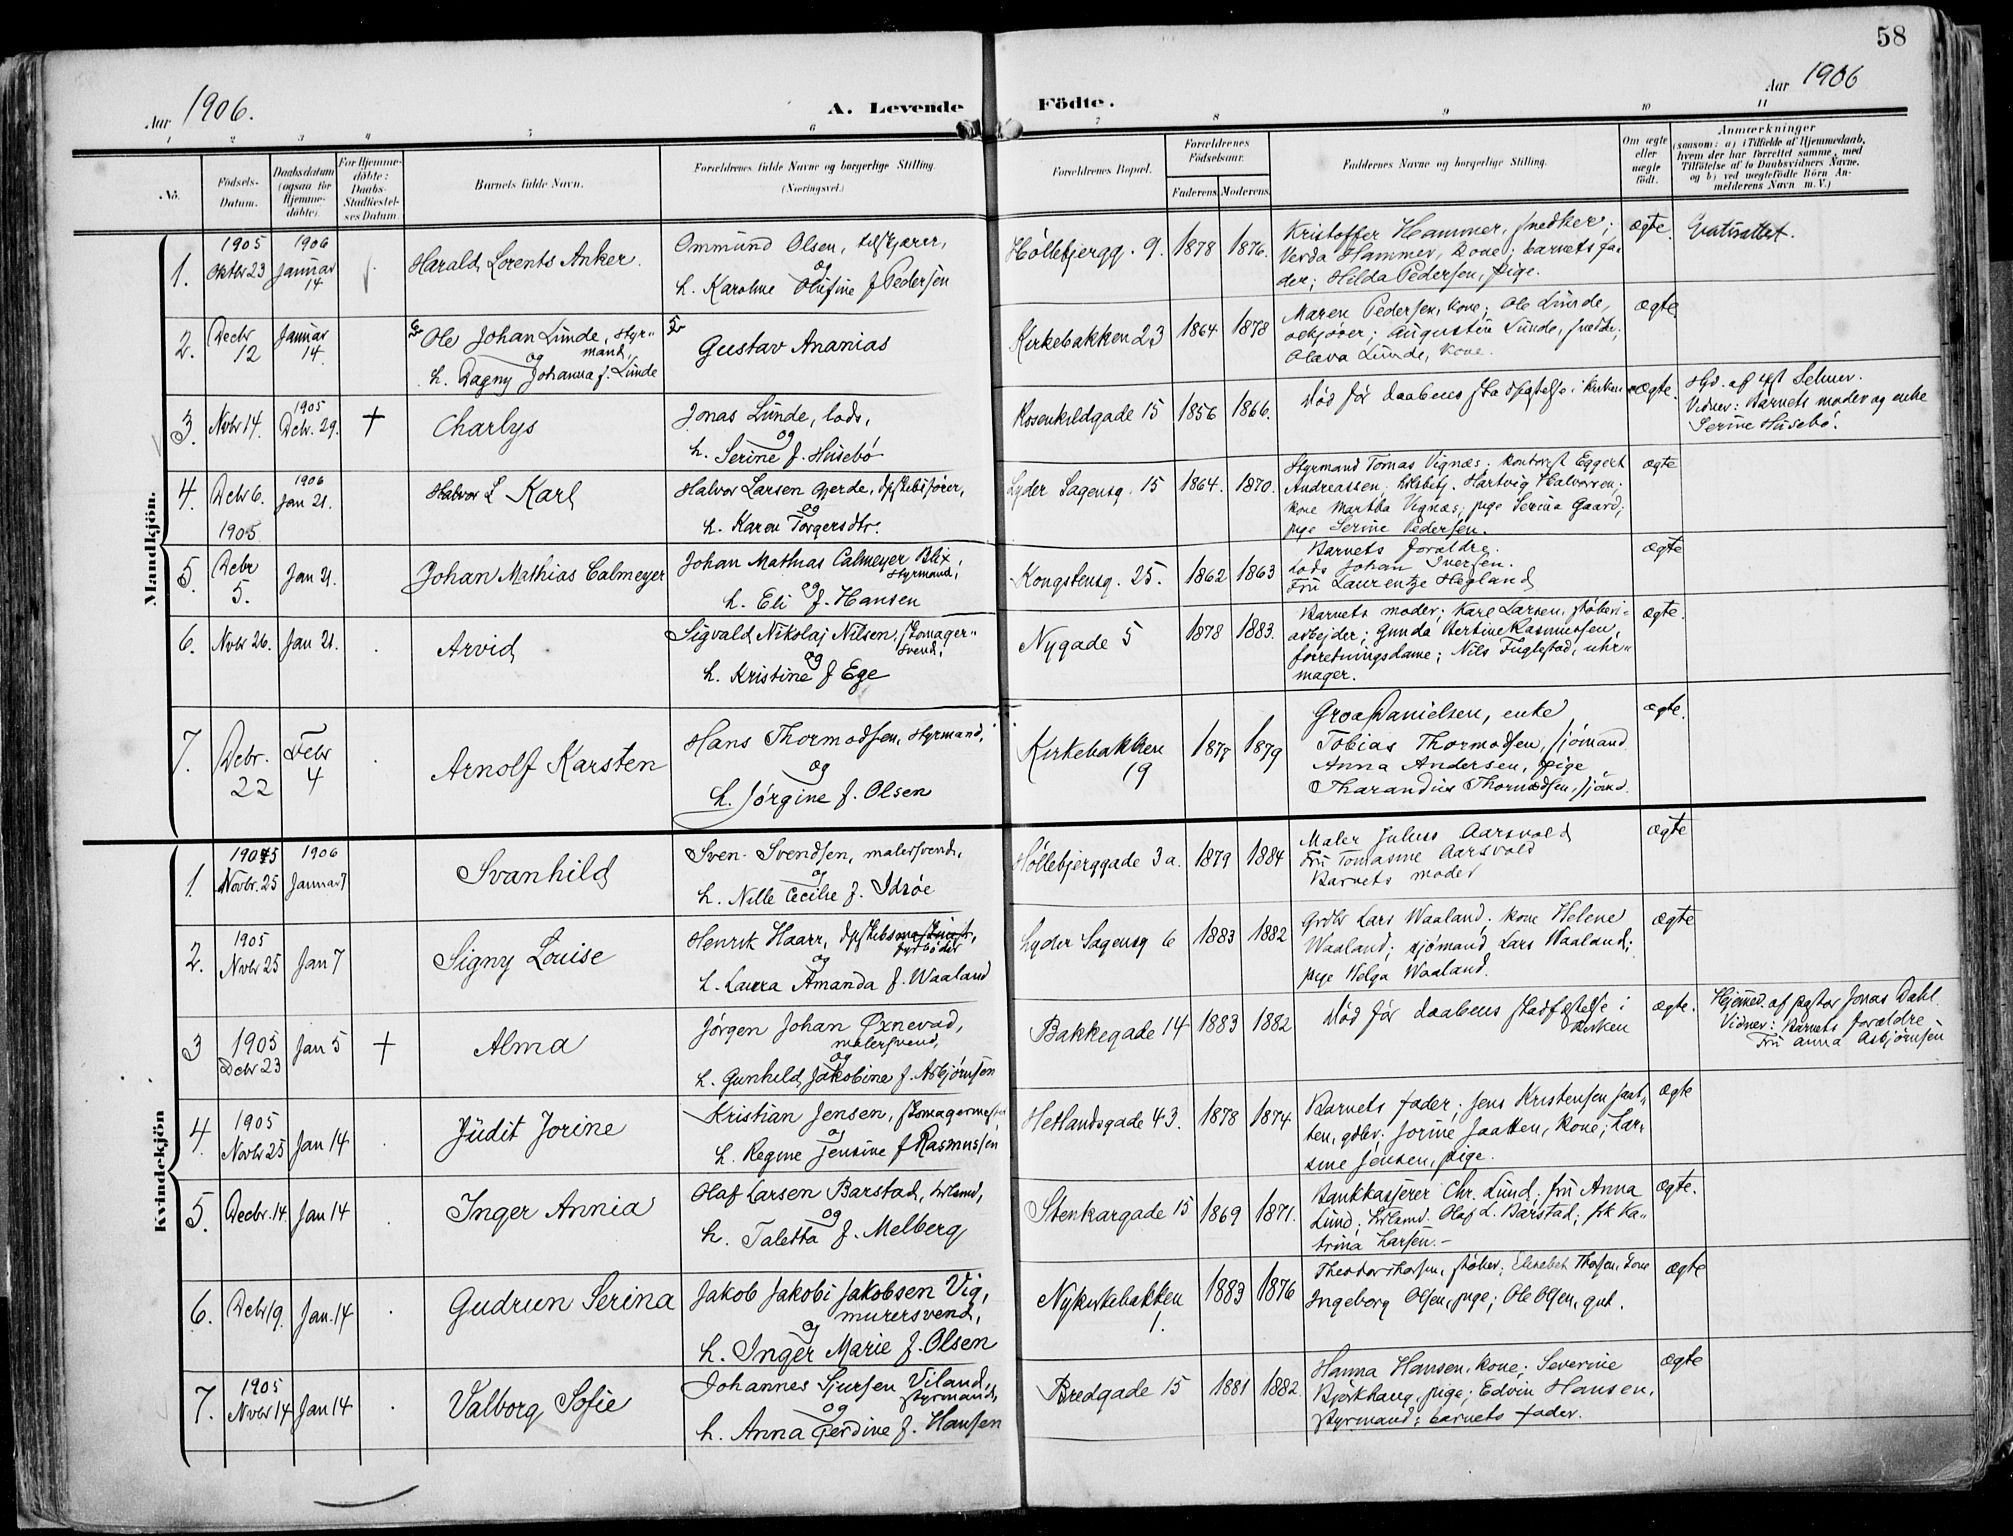 58
Aar 1906.
A. Levende
Födte.
Aar 1906
1 2 3 4 5 6 7 8 9 10 11
No.
Födsels-
Datum.
Daabsdatum
(ogsaa for
Hjemme-
döbte).
For Hjemme-
döbte:
Daabs-
Stadfæstel-
ses Datum
Barnets fulde Navn.
Forældrenes fulde Navne og borgerlige Stilling.
(Næringsvei.)
Forældrenes Bopæl.
Forældrenes
Födselsaar.
Faderens. Moderens.
Faddernes Navne og borgerlige Stilling.
Om ægte
eller
uægte
födt.
Anmærkninger
(saasom: a) i Tilfælde af Hjemmedaab,
hvem der har forrettet samme, med
Tilföielse af to Daabsvidners Navne,
og b) ved uægtefödte Börn An-
melderens Navn m. V.)
Mandkjön.
1.
1905
Oktbr 23
1906
Januar
14
Harald Lorents Anker.
Ommund Olsen,
og
h. Karoline Olufine f Pedersen
Høllebjergg. 9.
1878
1876.
Kristoffer Hammer, snedker;
Verda Hammer, kone; barnets fa-
der; Hilda Pedersen, pige.
ægte.
2.
Decbr
12
Januar
14.
Ole Johan Lunde, styr-
mand,
og
h. Dagny Johanna f. Lunde
Gustav Ananias
Kirkebakken 23
1864
1878
Maren Pedersen, kone; Ole Lunde,
Augustin Lunde,
Olava Lunde, kone.
ægte
3.
Novbr 14.
1905
Debr. 29.
+
Charlys
Jonas Lunde, lods,
og
h. Serine f. Husebø
Rosenkildgade 15
1856
1866.
Død før daabens stadfæstelse i kirken
ægte.
Vidner: Barnets moder og enke
Serine Husebø.
4.
Debr 6.
1905
1906
Jan 21.
Karl
Halvor Larsen Gjerde, dpskibsfører,
og
h. Karen Torgersdtr.
Lyder Sagensg. 15
1864.
1870.
Styrmand Tomas Vignæs; kontorist Eggert
Andreassen. Hartvig Halvorsen;
kone Martha Vignæs; pige Serina Gaard;
pige Serine Pedersen.
ægte
5.
Debr
5.
Jan 21.
Johan Mathias Calmeyer
Johan Mathias Calmeyer Blix
styrmand;
og
h. Eli f. Hansen
Kongstensg. 25.
1862
1863
Barnets forældre.
Lods Johan Iversen.
Fru Laurentze Hegland
ægte
6.
Novbr 26.
Jan 21.
Arvid
Sigvald Nikolaj Nilsen, skomager-
svend,
og
h. Kristine f Ege
Nygade 5
1878
1883.
Barnets moder; Karl Larsen, støberi-
arbejder; Gunda Bertine Rasmussen,
forretningsdame; Nils Fuglestad, uhr-
mager.
ægte.
7.
Debr.
22
Febr
4
Arnolf Karsten
Hans Thormodsen, styrmand,
og
h. Jørgine f. Olsen
Kirkebakken
19
1877
1879
Groa Danielsen, enke
Tobias Thormodsen, sjømand
Anna Andersen, pige
Tharandus Thormodsen, sjømd.
ægte.
Kvindekjön
1.
1905
Novbr. 25
1906
Januar 7
Svanhild
Sven Svendsen, malersvend,
og
h. Nille Cecilie f. Idsøe
Høllebjerggade 3 a.
1879
1884
Maler Julius Aarsvold
Fru Tomasine Aarsvold
Barnets moder
ægte
2.
1905
Novbr 25
Jan 7
Signy Louise
Henrik Haarr,
fyrbøder
og
h. Laura Amanda f. Waaland
Lyder Sagensg 6
1883
1882
Grdbr Lars Waaland; kone Helene
Waaland; sjømand Lars Waaland;
pige Helga Waaland.
ægte
3
1905
Debr 23
Jan 5
+
Alma
Jørgen Johan Øxnevad,
malersvend,
og
h. Gunhild Jakobine f. Asbjørnsen
Bakkegade 14
1883
1882
Død før daabens stadfæstelse i
kirken
ægte.
Hjemmed. af pastor Jonas Dahl.
Vidner: Barnets forældre
Fru Anna Asbjørnsen
4.
1905
Novbr 25
Jan 14
Judit Jorine
Kristian Jensen, skomagermester
og
h. Regine Jensine f Rasmussen
Hetlandsgade 43.
1878
1874
Barnets fader; Jens Kristensen Jaat-
ten, gdbr; Jorine Jaatten, kone; Lar-
sine Jensen, pige.
ægte
5.
Decbr. 14
Jan 14
Inger Annia
Olaf Larsen Barstad,
og
h. Taletta f. Melberg
Stenkargade 15
1869
1871.
Bankkasjerer Chr. Lund; fru Anna
Lund; Olaf L. Barstad; frk Ka-
trina Larsen.-
ægte.
6.
Debr 19.
Jan. 14
Gudrun Serina
Jakob Jakobi Jakobsen Vig,
murersvend,
og
h. Inger Marie f. Olsen
Nykirkebakken
1.
1883
1876
Theodor Thorsen, støber; Elisabet Thorsen, kone
Ingeborg Olsen, pige; Ole Olsen, gut.
ægte
7.
1905
Novbr 14
Jan 14
Valborg Sofie
Johannes Sjursen Viland,
styrmand,
og
h. Anna Gerdine f. Hansen
Bredgade 15
1881
1882.
Hanna Hansen, kone; Severine
Bjørkhaug, pige; Edvin Hansen,
styrmand; barnets fader.
ægte